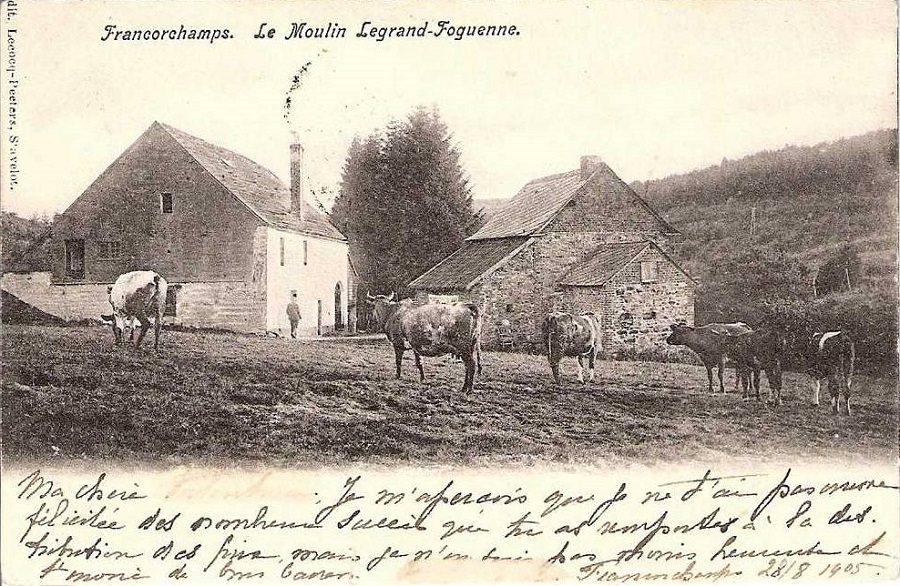 Francorchamps. Le Moulin Legrand-Foguenne.
dit. Lecocq-Peeters, Stavelot.
Ma chère Je m'aperçois que je ne t'ai pas encore
félicitée des nombreux succès que tu as remportés à la dis-
tribution des prix, mais je n'en suis pas moins heureuse et
de Francorchamps 28/8 1905.